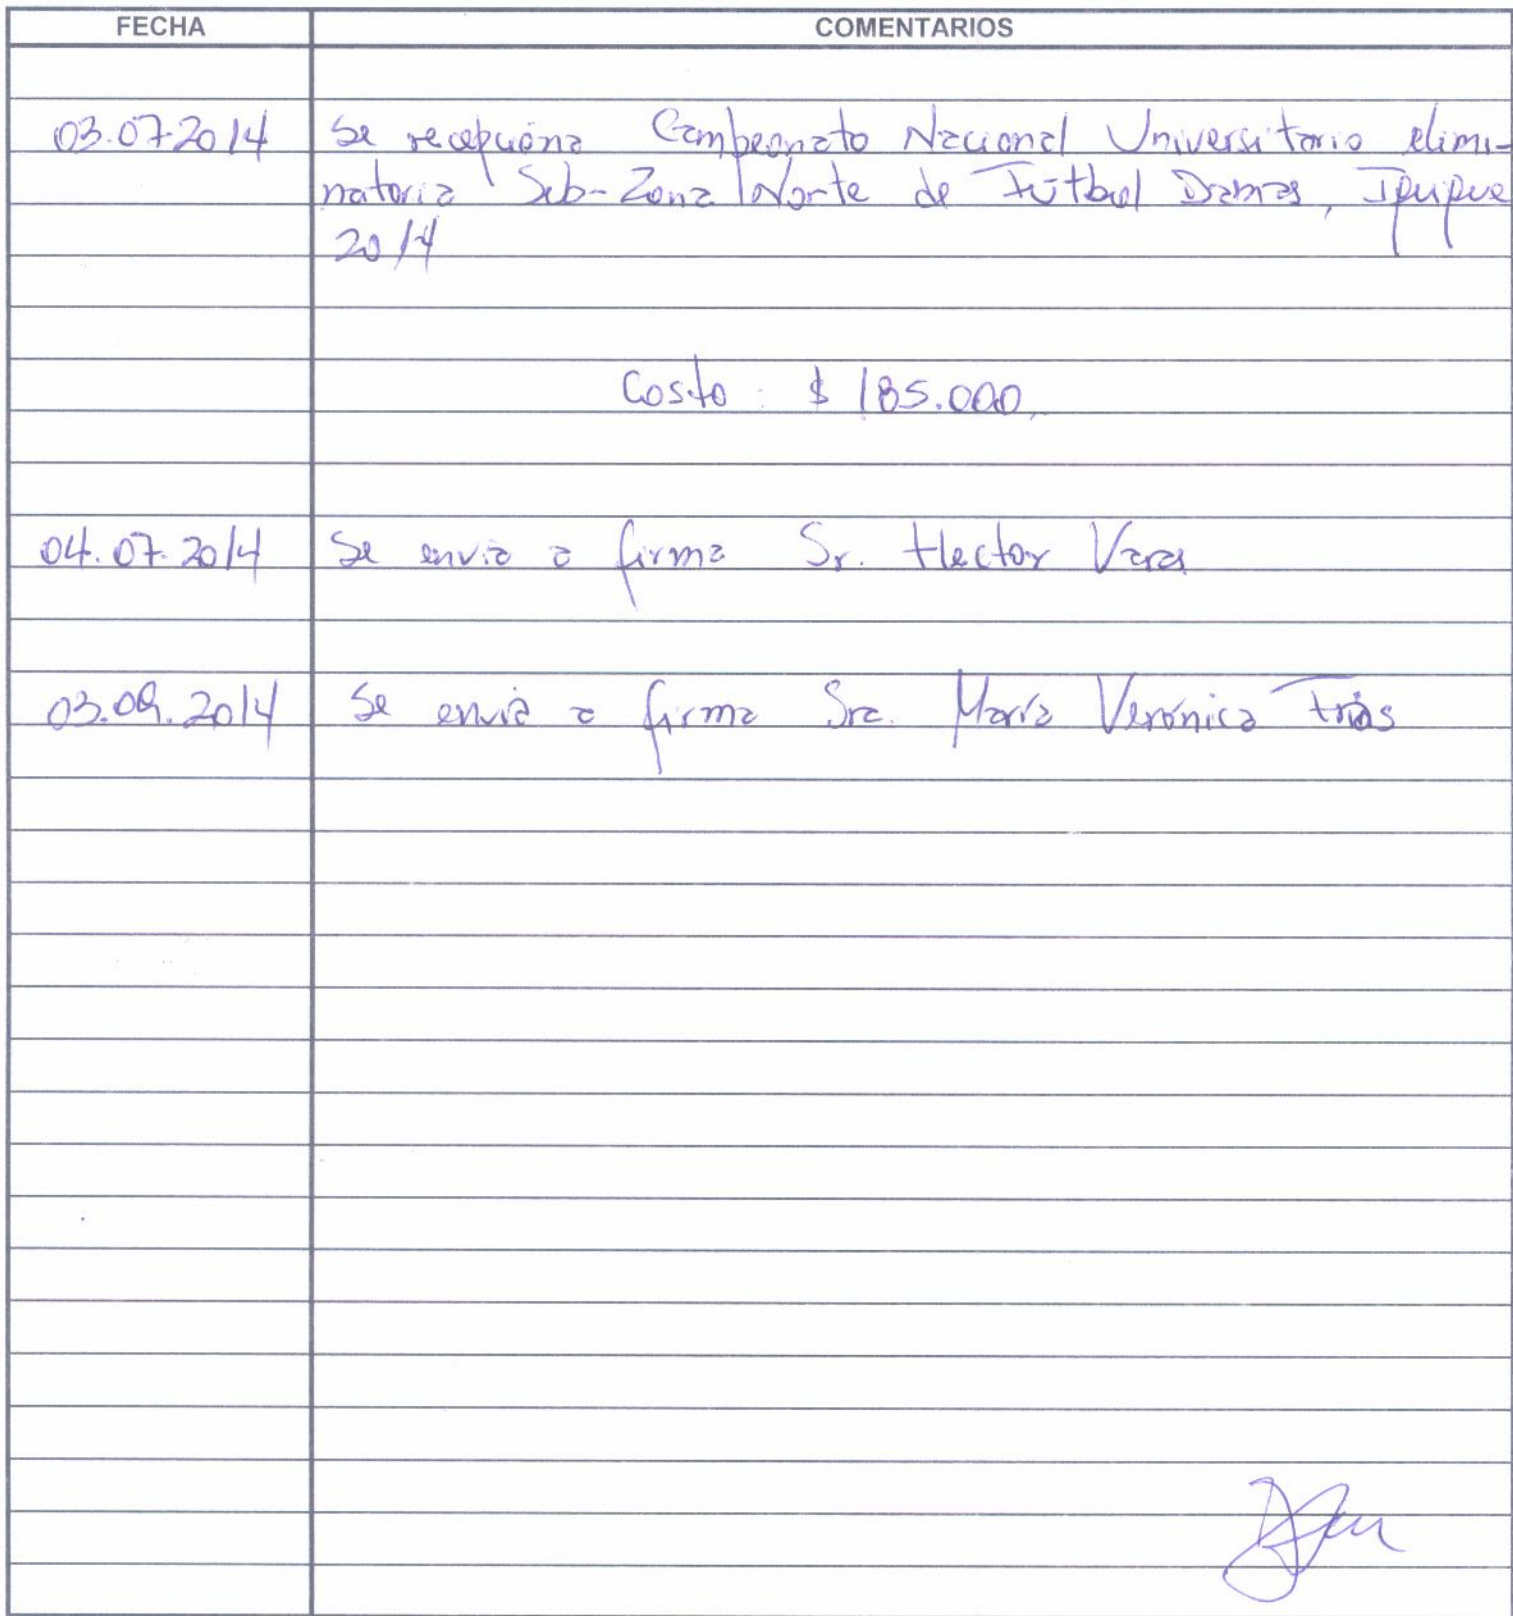 FECHA COMENTARIOS
03.07.2014 Se recepciona Campeonato Nacional Universitario elimi-
natoria Sub-Zona Norte de Fútbol Damas, Iquique
2014
Costo: $ 185.000
04.07.2014 Se envia a firma Sr. Hector Varas
03.09.2014 Se envia a firma Sra. María Verónica Frias